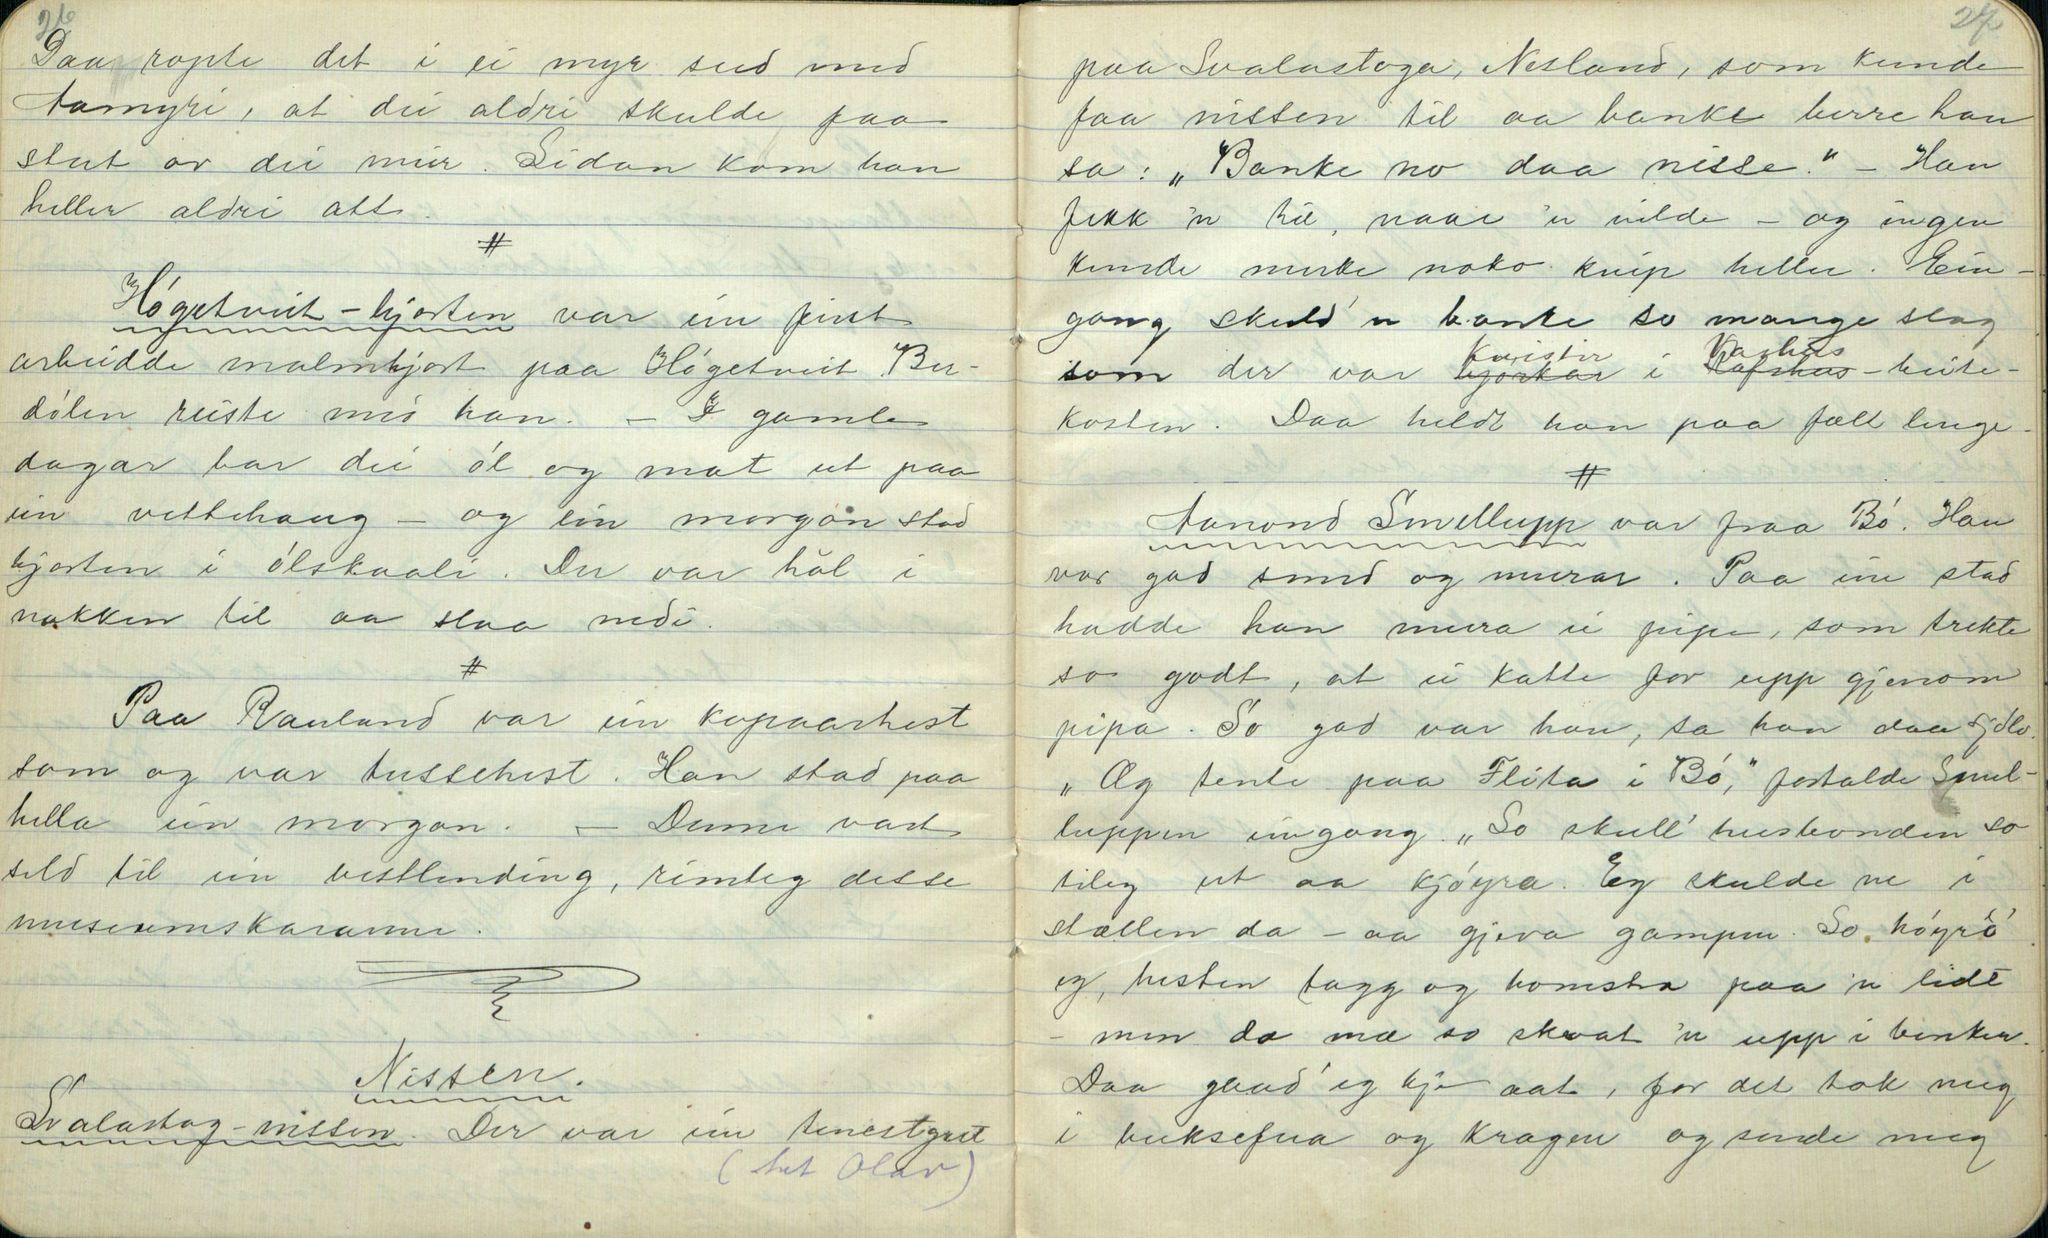 26
Daa ropte det i ei myr sud med
Aamyri, at dei aldri skulde faa
stut av dei meir. Sidan kom han
heller aldri att.
#
Høgetveit-hjorten var ein fint
arbeidde malmhjort paa Høgetveit. Ber-
dølen reiste med han. – I gamle
dagar bar dei øl og mat ut paa
ein vettehaug – og ein morgon stod
hjorten i ølskaali. Der var hòl i
nakken til aa slaa nedi.
#
Paa Rauland var ein koparhest
som og var tussehest. Han stod paa
hella ein morgon. – Denne vart
seld til ein vestlending, rimleg desse
museumskarane.
Nissen.
Svalastog-nissen. Der var ein tenestgut
(het Olav)
27
paa Svalastoga, Nesland, som kunde
faa nissen til aa banke berre han
sa: „Banke no daa nisse." – Han
fekk 'n til, naar 'n vilde – og ingen
kunde merke noko knip heller. Ein-
gong skuld'n banke so mange slag
som der var kvistir i Varhus
bjørkar -beite-
kosten. Daa heldt han paa fælt lenge.
#
Aanond Smellupp var fraa Bø. Han
var god smed og murar. Paa ein stad
hadde han mura ei pipe, som trekte
so godt, at ei katte for upp gjenom
pipa. So god var han, sa han daa sjølv.
„Æg tente paa Flita i Bø," fortalde Smel-
luppen eingong. „So skull' husbonden so
tileg ut aa kjøyra. Eg skulde ne i
stallen da – aa gjeva gampen. So høyrd'
eg, hesten tagg og homstra paa 'n lidt
– men da mæ so skvat 'n upp i benken.
Daa gaad' eg kje aat, for det tok meg
i buksefua og kragen og sende meg